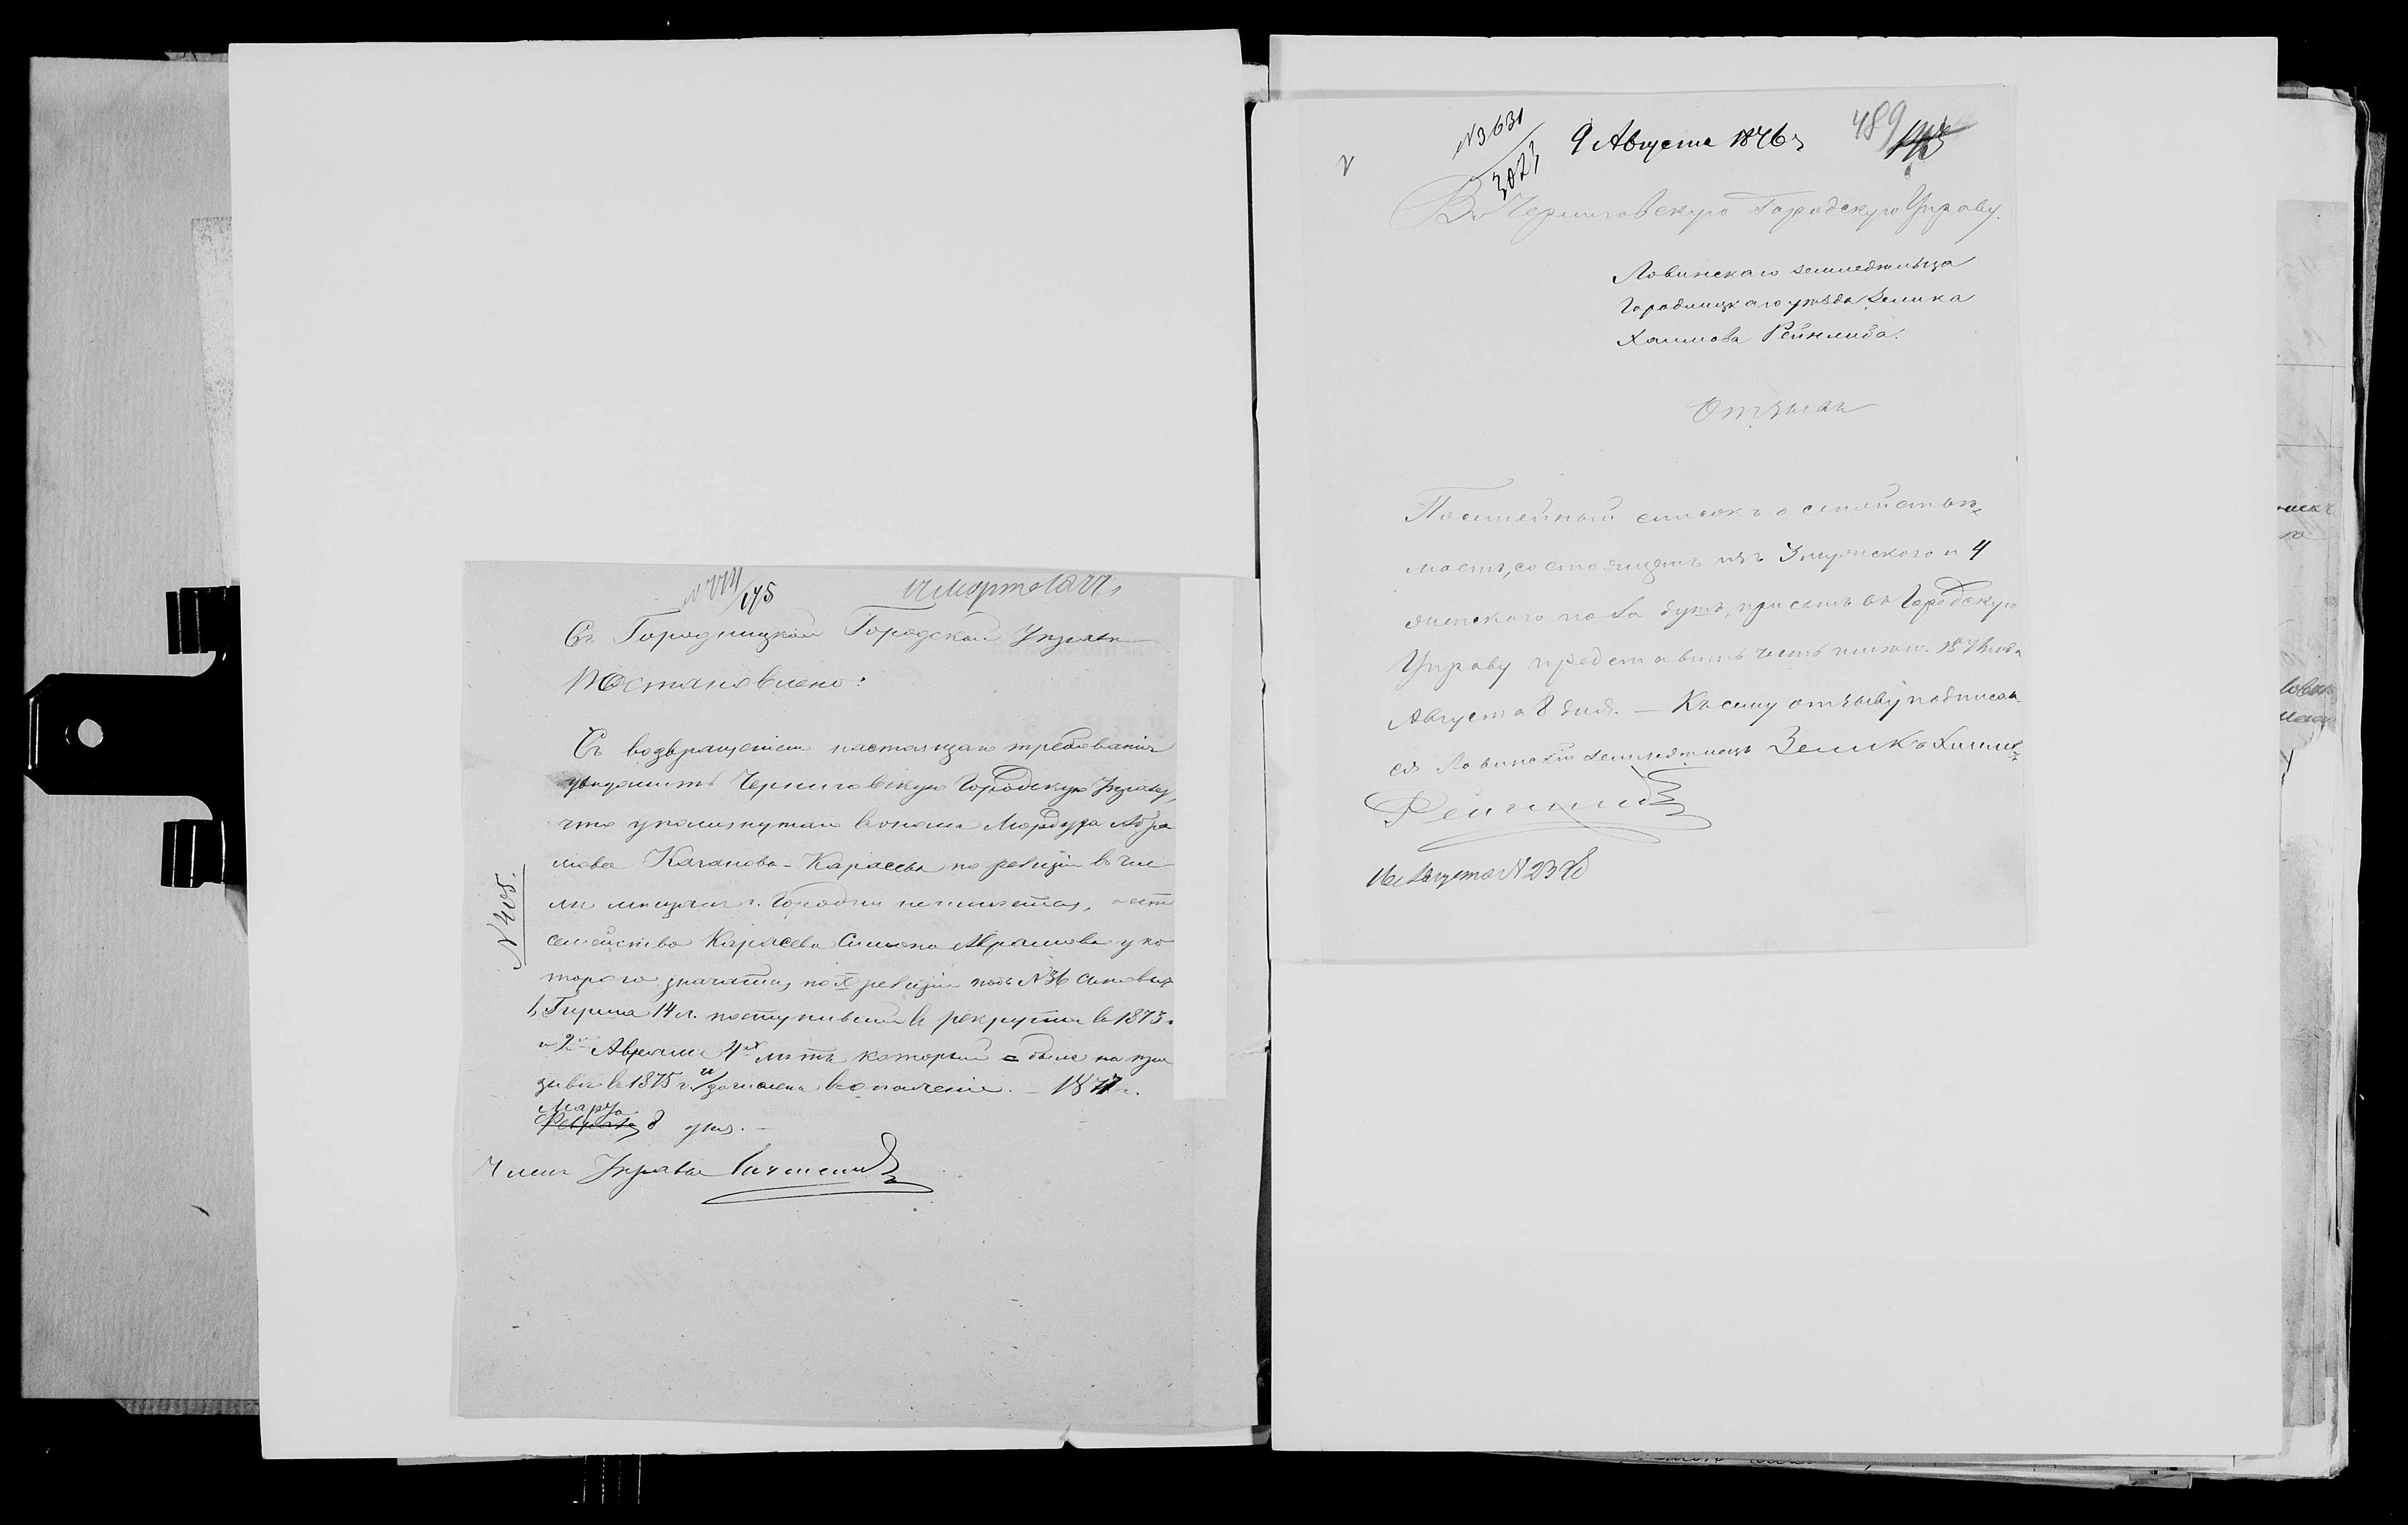 N 777/175
12 Марта 1877 г
Въ Городницкой Городской Управе
Постановлено:
Съ возвращеніем настоящаго требованія
уведомить Черниговскую Городскую Управу,
что упомянутаго в оном Мордуха Абра
мова Каганова-Карасева по ревизіи в чис
ле мещан г. Городни не числится, а есть
семейство Карасева Симона Абрамова у ко
тораго значатся по X ревизіи подъ N 36 сыновья
1, Гирша 14 л. поступившій в рекруты в 1873 г
и 2й Абрам 4х летъ который был на при
зыве в 1875 г. и зачислен в ополченіе. – 1877 г.
Марта
Февраля 8 дня. –
Членъ Управы
N 405.
N 3631/3023
9 Августа 1876 г
489
Въ Черниговскую Городскую Управу.
Ловинскаго земледельца
Городницкаго уезда Зелика
Хаимова Рейнлиба.
Отзывъ
Посемейный списокъ о семействе
моемъ, состоящемъ изъ 3 мужского и 4
женского пола душъ, при семъ въ Городскую
Управу представить честь имею. 1876 года
Августа 8 дня. — Къ сему отзыву подписал
ся Ловинскій земледелецъ Зеликъ Хаимов
Рейнлиб
16 Августа N 2378